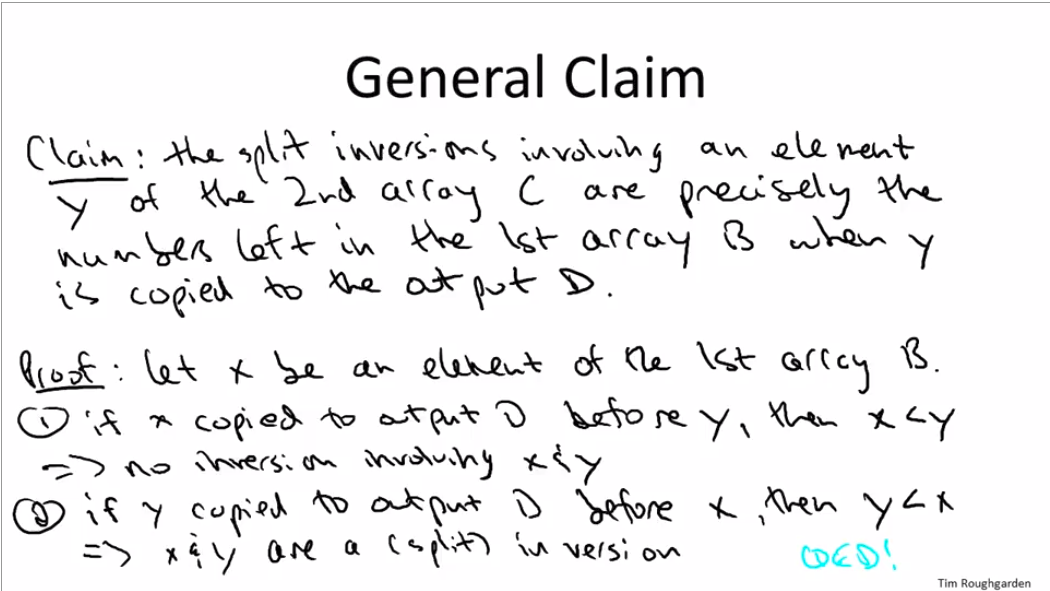 General Claim
Claim: the split inversions involving an element
y of the 2nd array C are precisely the
numbers left in the 1st array B when y
is copied to the output D.
Proof: let x be an element of the 1st array B.
① if x copied to output D before y, then x < y
=> no inversion involving x & y
② if y copied to output D before x, then y < x
=> x & y are a (split) inversion
QED!
Tim Roughgarden